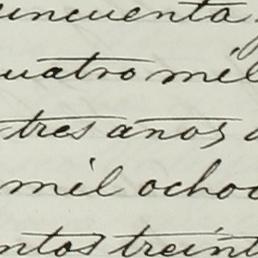 incuenta
uatro mil
tres años
mil ochoc
ntos treint